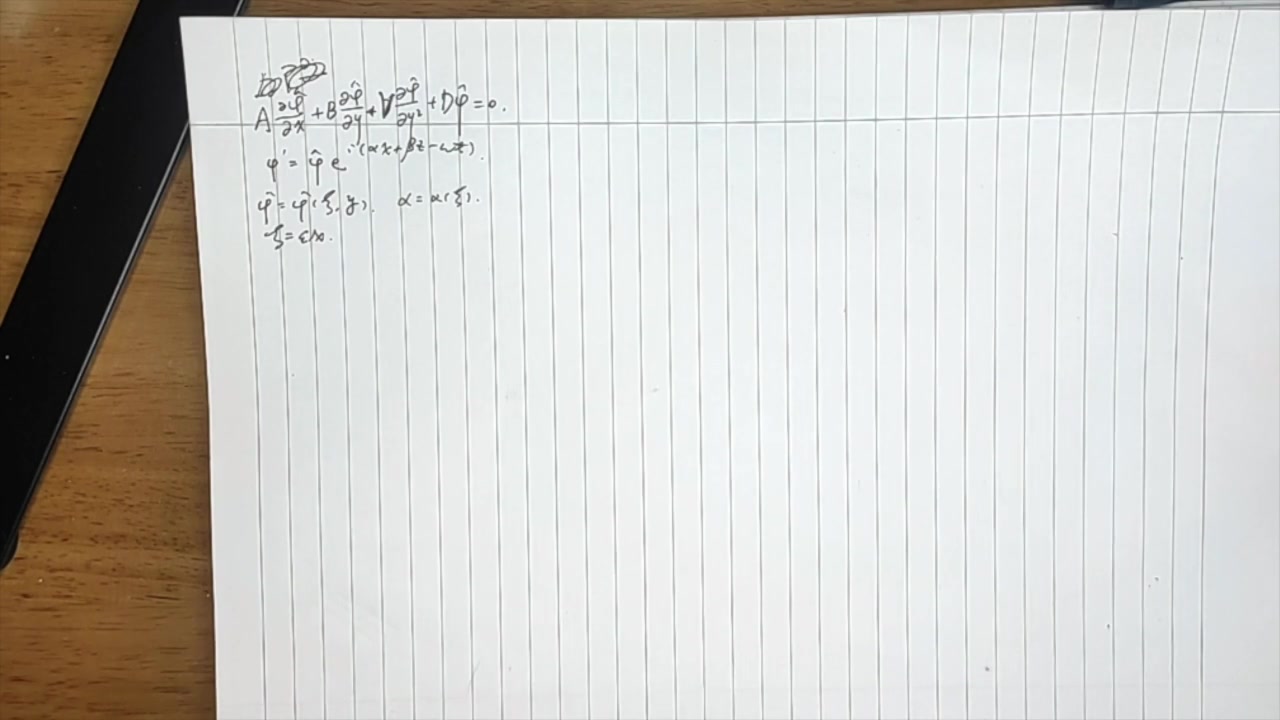 A ∂φ̂/∂x + B ∂φ̂/∂y + V ∂φ̂/∂y² + Dφ̂ = 0.
φ' = φ̂ e^{i(αx+βz-ωt)}.
φ̂ = φ̂(ξ, y). α = α(ξ).
ξ = εx.